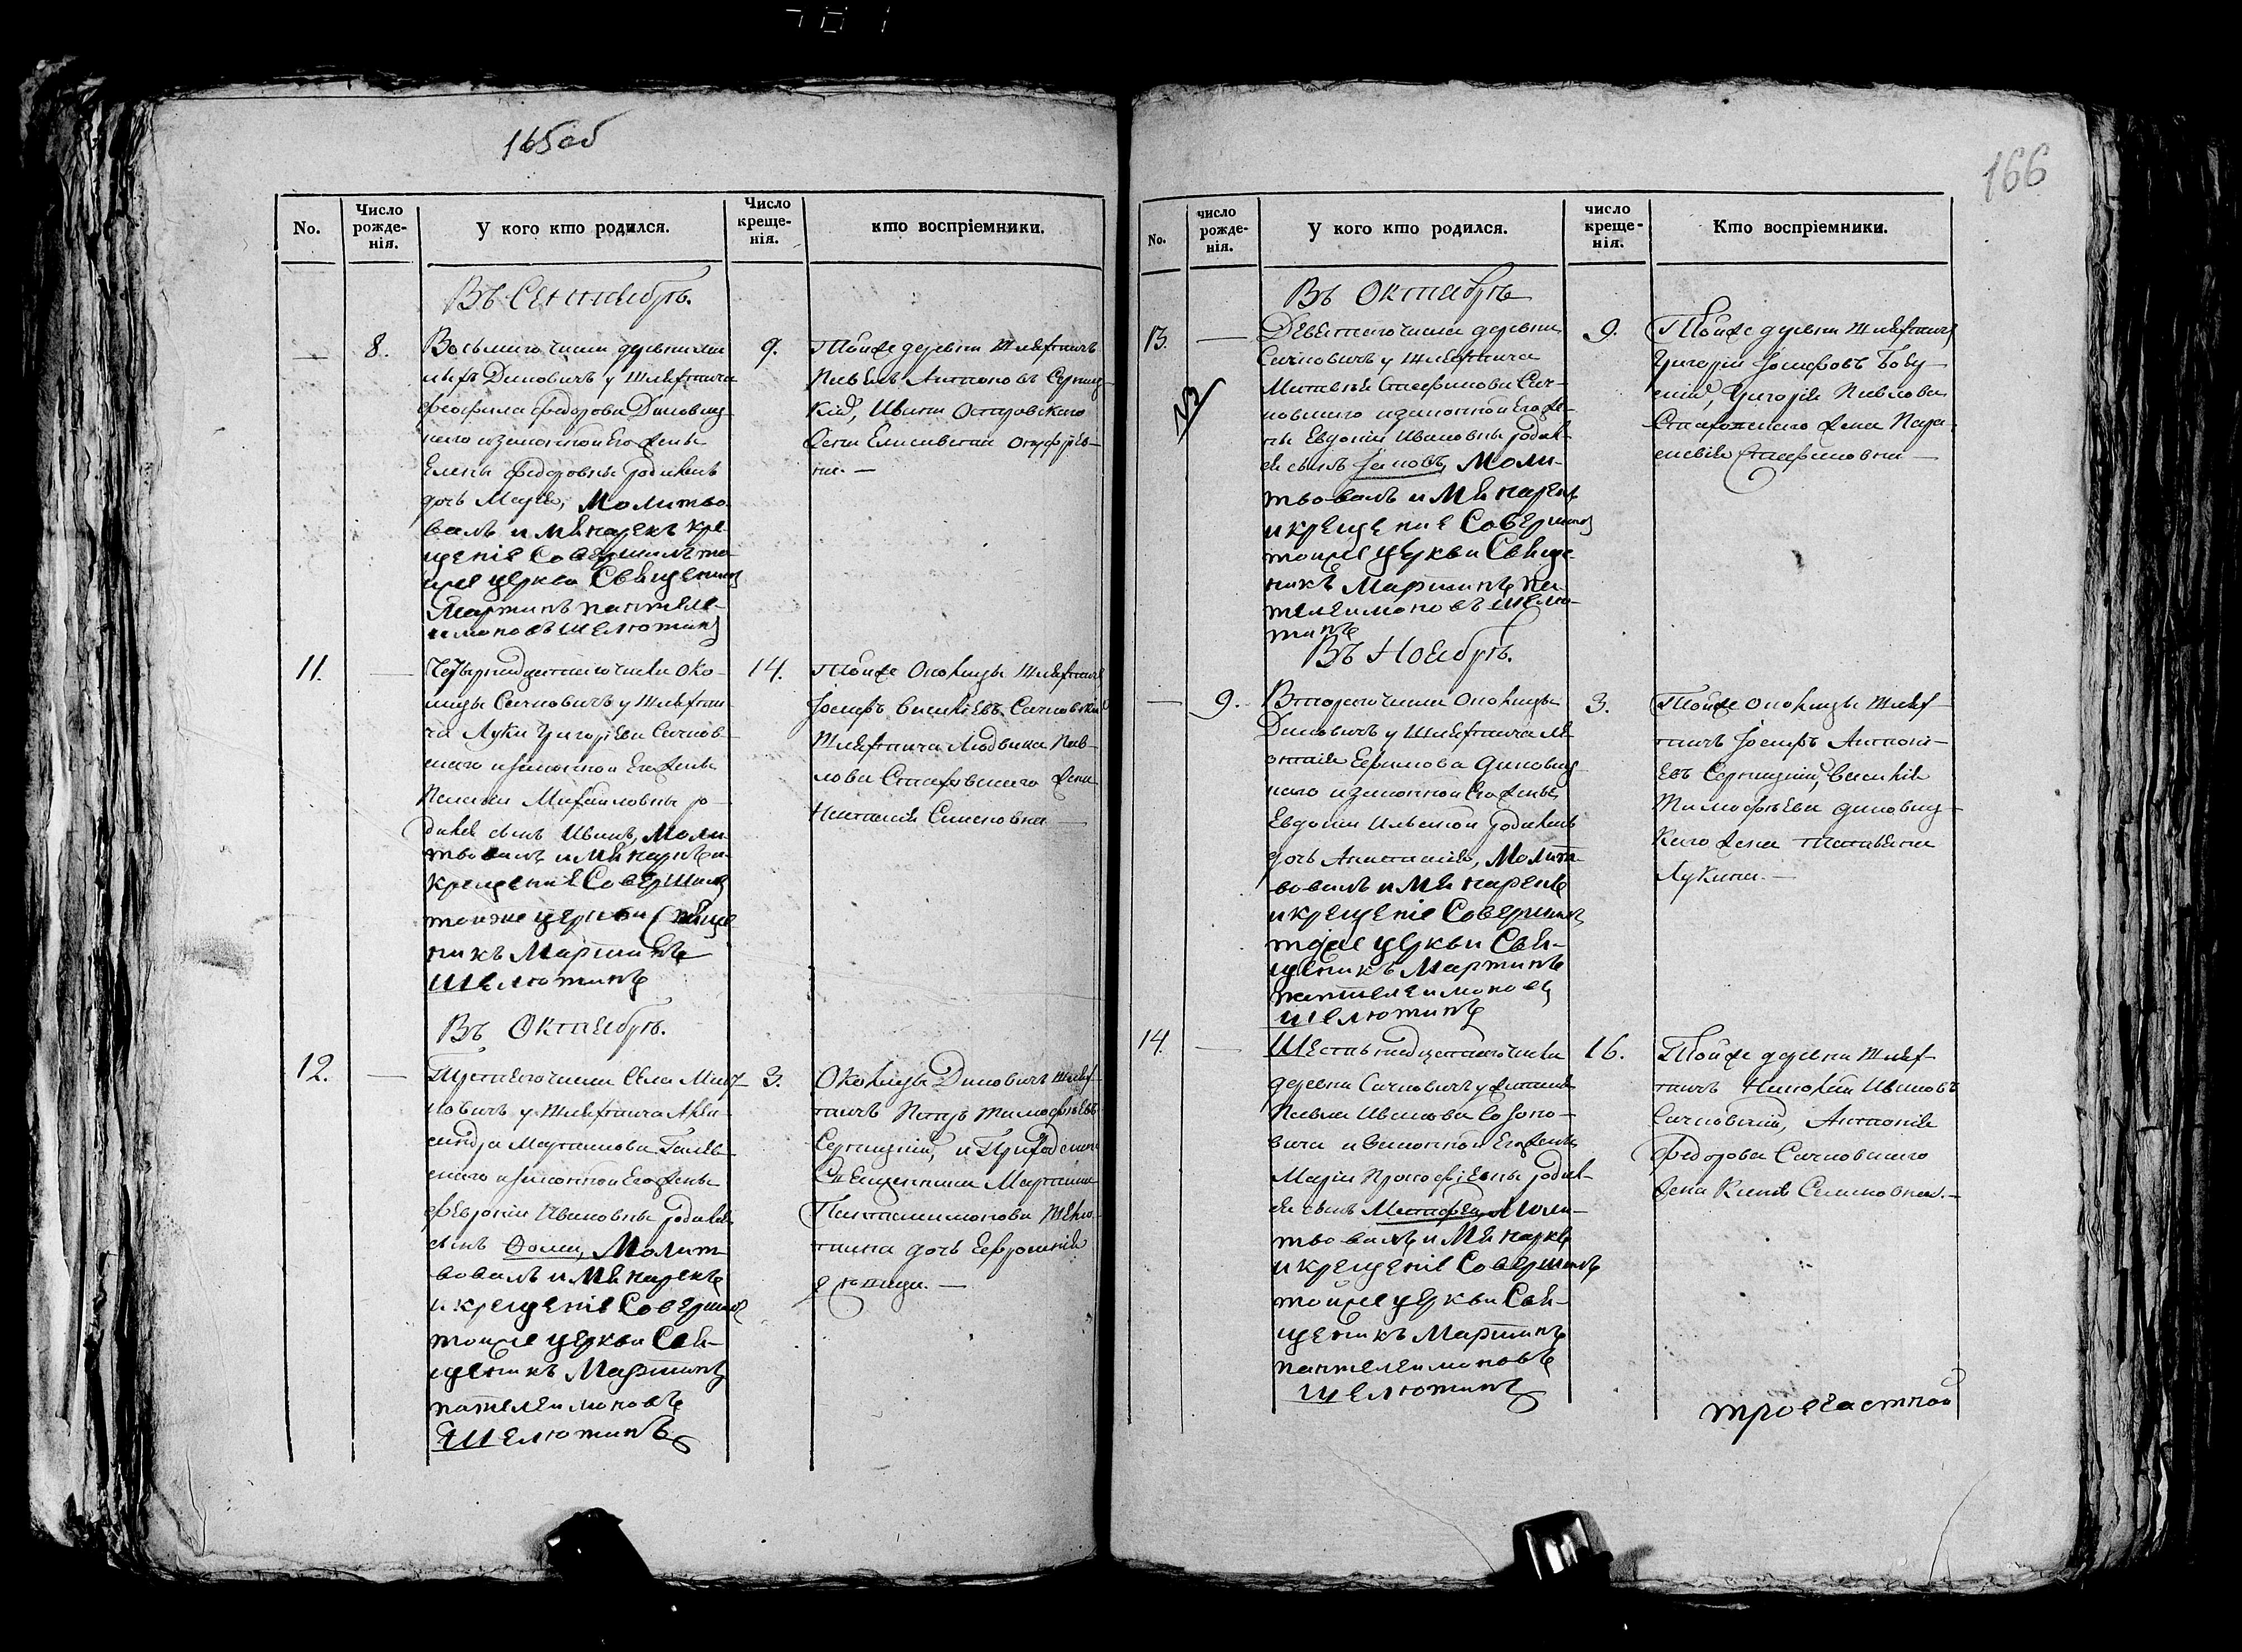 165об
No.
Число рожде-нія.
У кого кто родился.
Число креще-нія.
кто воспріемники.
Въ Сентябрѣ.
8.
Восьмаго числа деревни
Диновичъ у Шляхтича
Феофила Федорова Диновиц-
каго изаконной Его Жены
Елены Федоровны родилась
дочь Марія, Молитво
валъ и Мя нарекъ кре
щеніе Совершилъ то
йже церкви Священикъ
Мартинъ пантеле-
имоновъ Шелютинъ
9.
Тойже деревни Шляхтичъ
Павелъ Антоновъ Серниц-
кій, Ивана Островскаго
Жена Елисавета Онуфріев-
на. —
11.
Четырнадцатаго числа Око-
лицы Сачковичъ у Шляхти-
ча Луки Григорьева Сачков-
скаго изаконной Его Жены
Михайловны ро-
дился сынъ Иванъ, Моли-
твовалъ и Мя нарекъ и
крещеніе Совершилъ
тойже церкви Свяще
никъ Мартинъ
Шелютинъ
14.
Тойже Околицы Шляхтичъ
Іосифъ Сачковскій
Шляхтича Людвика Пав-
лова Жена
Наталія Семеновна —
Въ Октябрѣ.
12.
Третьяго числа Села
у Шляхтича Алек-
сандра Мартинова
скаго изаконной Его Жены
Февроніи Ивановны родился
сынъ Фома, Молит
вовалъ и Мя нарекъ
и крещеніе Совершилъ
тойже церкви Свя-
щеникъ Мартинъ
пателеимоновъ
Шелютинъ
3.
Околицы Диновичъ Шлях-
тичъ Петръ Тимофѣевъ
Серницкій, и Приходскаго
Священника Мартина
Пантелимонова Шелю-
тина дочь Ефросинія
дѣвица. —
166
No.
число рожде-нія.
У кого кто родился.
число креще-нія.
Кто воспріемники.
Въ Октябрѣ
13.
13
Девятагочисла деревни
Сачковичъ у Шляхтича
Матвѣя Стефанова Сач-
ковскаго изаконной Его Же-
ны Евдокіи Ивановны родил-
ся сынъ Іаковъ, Моли-
твовалъ и Мя нарекъ
и крещение Совершилъ
тойже церкви Свяще-
никъ Мартинъ па
телеимоновъ Шелю-
тинъ
9.
Тойже деревни Шляхтичъ
Григорій Іосифовъ
Григорія Павлова
Жена Пара-
скевія Стефановна —
Въ Ноябрѣ.
9.
Втораго числа Околицы
Диновичъ у Шляхтича Ле
онтія Ефимова Диновиц-
каго изаконной Его Жены
Евдокіи Ильиной родилась
дочь Анастасія, Молит-
вовалъ и Мя нарекъ
и крещеніе Совершилъ
тоже церкви Свя-
щеникъ Мартинъ
пантелеимоновъ
Шелютинъ
3.
Тойже Околицы Шлях-
тичъ Іосифъ Антоні-
евъ Серницкій, Василія
Тимофѣева Диновиц-
каго Жена Татьяна
Лукина. —
14.
Шестьнадцатаго числа
деревни Сачковичъ у
Павла Иванова
изаконной Его Жены
Маріи Прокофіевны родил-
ся сынъ Матфей, Моли-
твовалъ и Мя наркъ
и крещеніе Совершилъ
тойже церкви Свя-
щеникъ Мартинъ
пантелеимоновъ
Шелютинъ
16.
Тойже деревни Шлях-
тичъ Николай Ивановъ
Сачковскій, Антонія
Федорова Сачковскаго
Жена Семеновна. —
троечастной